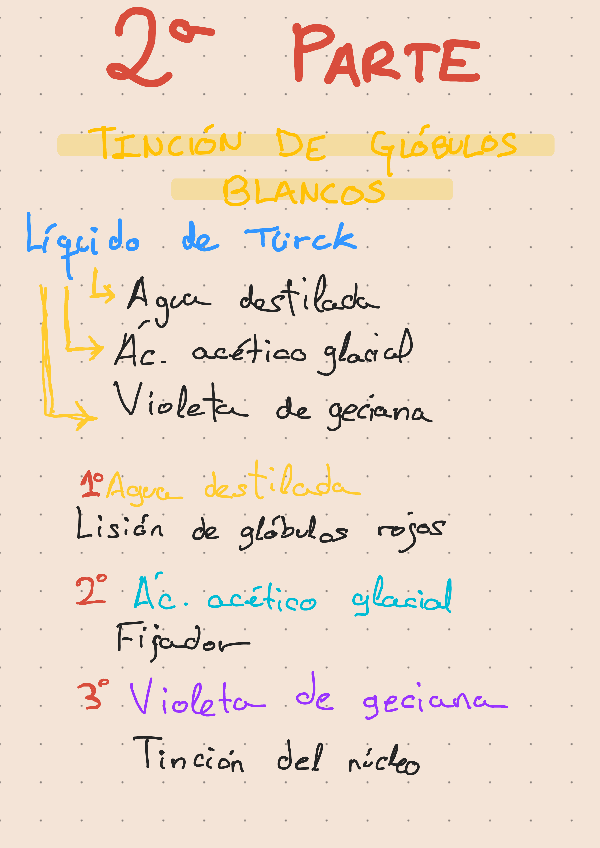 2ª PARTE
TINCIÓN DE GLÓBULOS
BLANCOS
Líquido de Türck
Agua destilada
Ác. acético glacial
Violeta de geciana
1º Agua destilada
Lisión de glóbulos rojos
2º Ác. acético glacial
Fijador
3º Violeta de geciana
Tinción del núcleo